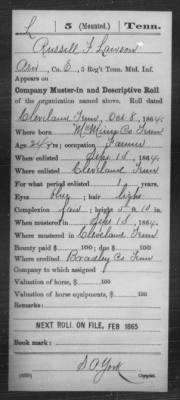 L | 5 (Mounted.) | Tenn.
Russell F Lawson
, Co. E, 5 Reg't Tenn. Mtd. Inf.
Appears on
Company Muster-in and Descriptive Roll
of the organization named above. Roll dated
Cleveland Tenn, Oct 8, 1864.
Where born McMinn Co Tenn
Age 24 y'rs; occupation Farmer
When enlisted Sept 1st, 1864.
Where enlisted Cleveland Tenn
For what period enlisted 1 years.
Eyes blue; hair light.
Complexion fair; height 5 ft. 10 in.
When mustered in Sept 13, 1864.
Where mustered in Cleveland Tenn
Bounty paid $ 100; due $ 100
Where credited Bradley Co Tenn
Company to which assigned
Valuation of horse, $ 100
Valuation of horse equipments, $ 100
Remarks:
NEXT ROLL ON FILE, FEB 1865
Book mark:
S A York
Copyist.